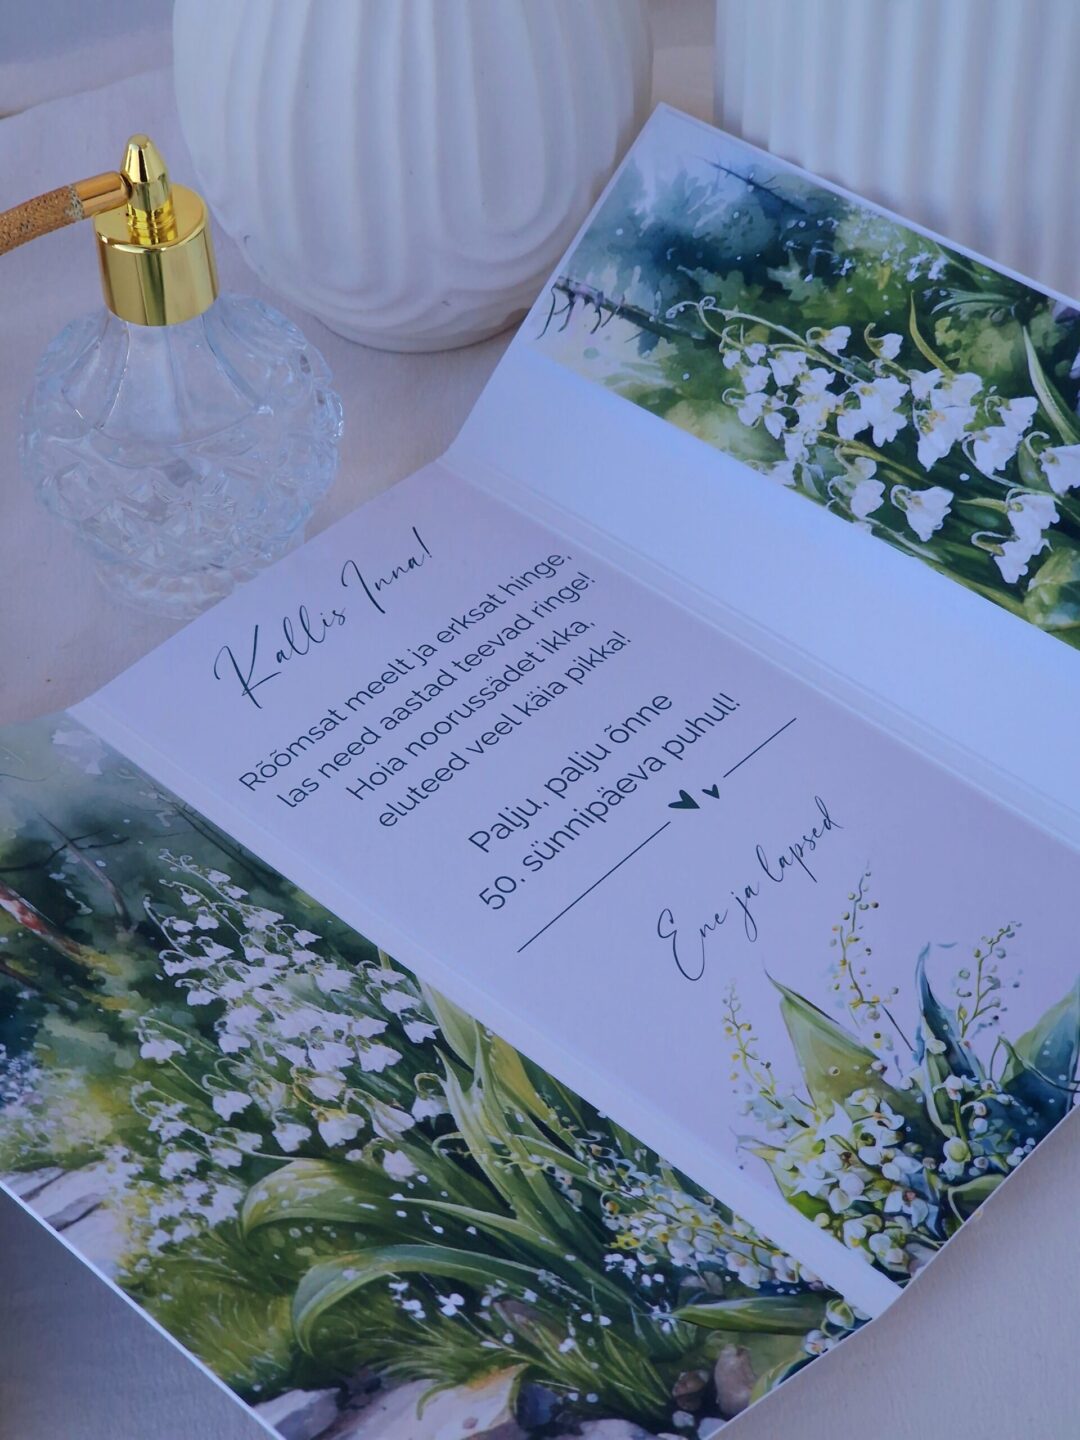 Kallis Inna!
Rõõmsat meelt ja erksat hinge,
las need aastad teevad ringe!
Hoia noorussädet ikka,
eluteed veel käia pikka!
Palju, palju õnne
50. sünnipäeva puhul!
Ene ja lapsed